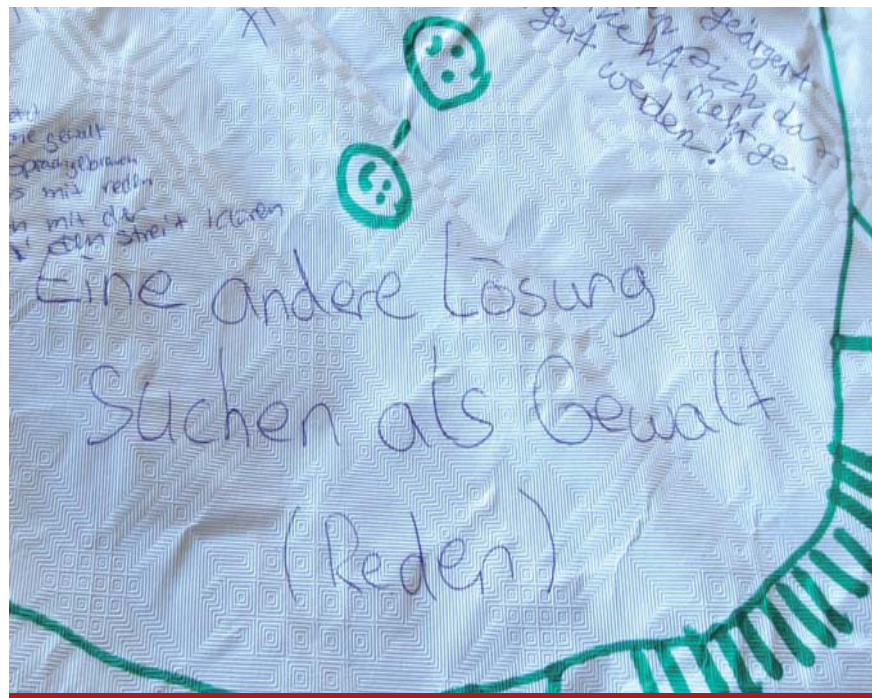 geärgert
nicht sich dass
mehr ge-
gert werden!
gewalt
mit reden
mit der
den streit klären
Eine andere Lösung
Suchen als Gewalt
(Reden)